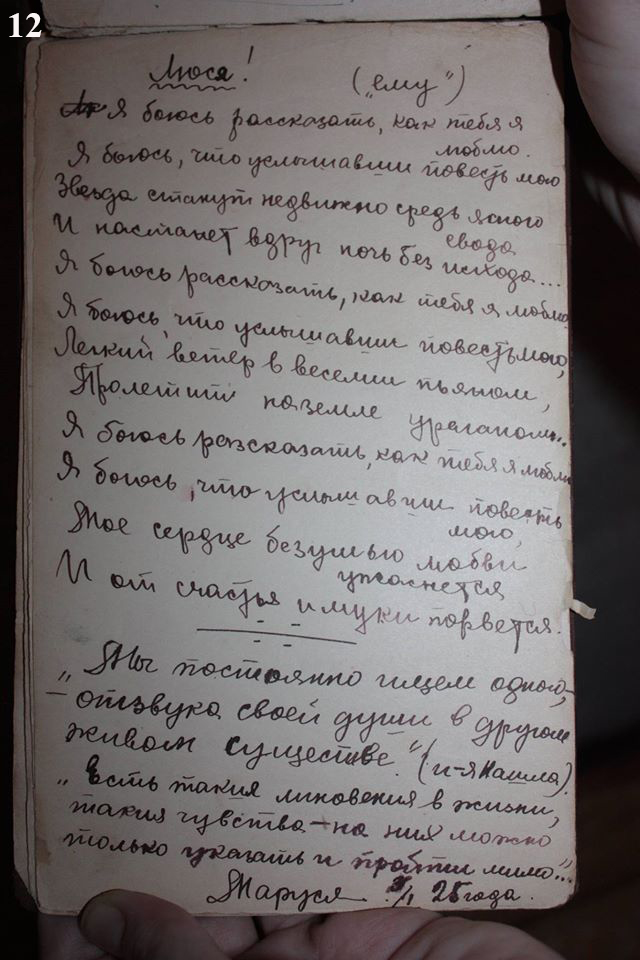 12
Люся! („ему")
Я боюсь рассказать, как тебя я
люблю.
Я боюсь, что услышавши повесть мою
Звезда станут недвижно средь ясного
свода
И настанет вдруг ночь без исхода...
Я боюсь рассказать, как тебя я люблю
Я боюсь, что услышавши повесть мою,
Легкий ветер в веселии пьяном,
Пролетит на земле ураганом...
Я боюсь разсказать, как тебя я люблю
Я боюсь, что услышавши повесть
мою,
Мое сердце безумью любви
ужаснется
И от счастья и муки порвется.
„Мы постоянно ищем одного,
– отзвука своей души в другом
живом существе." (и-я нашла).
„Есть такия мгновения в жизни,
такия чувства – на них можно
только указать и пройти мимо..."
Маруся 25 года.